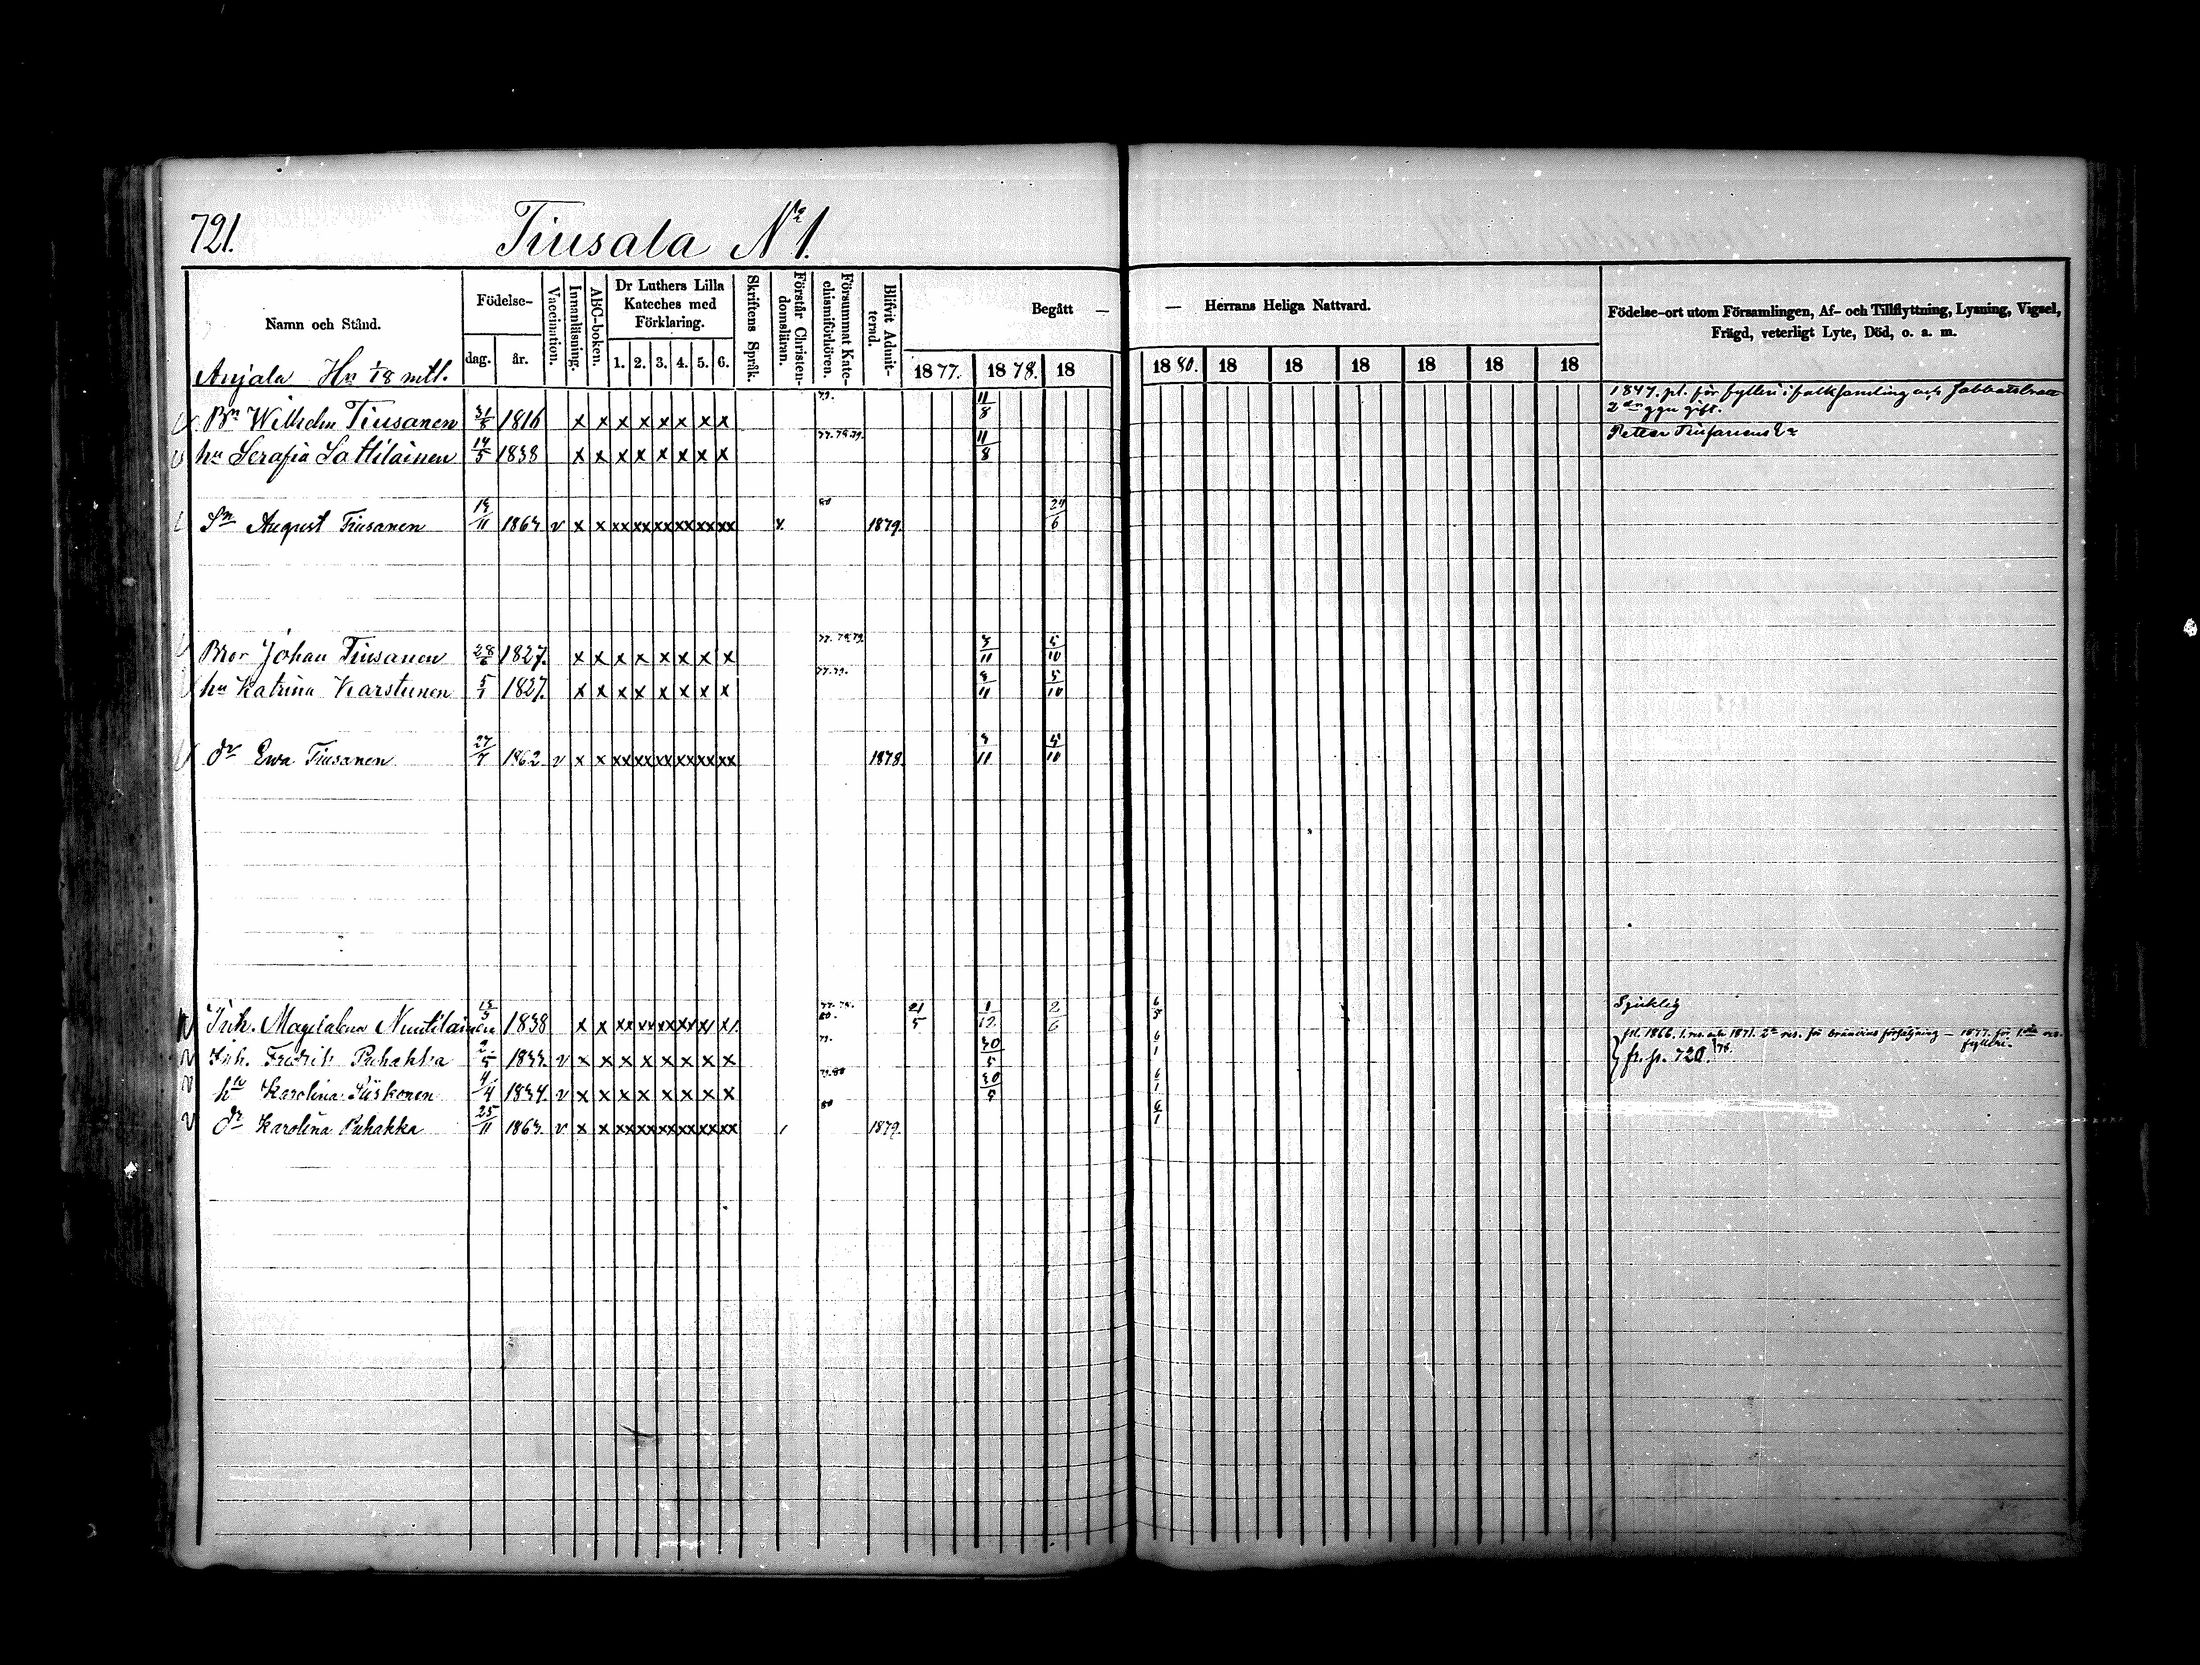 721. Tiusala No 1.
Namn och Stånd.
Födelse-
dag.
år.
Vaccination.
Innanläsning.
ABC-boken.
Dr Luthers Lilla
Kateches med
Förklaring.
1. 2. 3. 4. 5. 6.
Skriftens Språk.
Förstår Christen-
domsläran.
Försummat Kate-
chismiförhören.
Blifvit Admit-
terad.
Begått — — Herrans Heliga Nattvard.
1877. 1878. 18 1880. 18 18 18 18 18 18
Födelse-ort utom Församlingen, Af- och Tillflyttning, Lysning, Vigsel,
Frägd, veterligt Lyte, Död, o. a. m.
Anjala Hn 1/18 mtl.
Bn Wilhelm Tiusanen 1816 x x x x x x x x 79. 11/8 1847. pl. för fylleri i folksamling och Sabbatsbrott
2 dra ggn gift.
hu Serafia Sattilainen 14/5 1838 x x x x x x x x 77.78.79. 11/8
Sn August Tiusanen 1863 v x x xx xx xx xx xx xx x. 80 1879. 24/6
Bror Johan Tiusanen 28/6 1827. x x x x x x x x 77. 78.79. 3/11 5/10
hu Katrina Karstunen 5/1 1827. x x x x x x x x 77.79. 3/11 5/10
dr Ewa Tiusanen 27/7 1862 v x x xx xx xx xx xx xx 1878. 3/11 5/10
Inh. Magdalena Nuutilainen 1838 x x xx xx xx xx x/ x/. 77. 78. 80. 21/5 1/12 2/6 6/5 Sjuklig
Inh. Fredrik Puhakka 2/5 1833. v x x x x x x x x 79. 30/5 6/1 pl. 1866. 1. res. och 1871. 2a res. för bränvins försäljning — 1877. för 1sta res. fylleri.
fr. p. 720. /78.
hu Karolina Siiskonen 4/4 1834. v x x x x x x x x 79.80 30/5 6/1
dr Karolina Puhakka 25/11 1863. v x x xx xx xx xx xx xx / 80 1879. 6/1